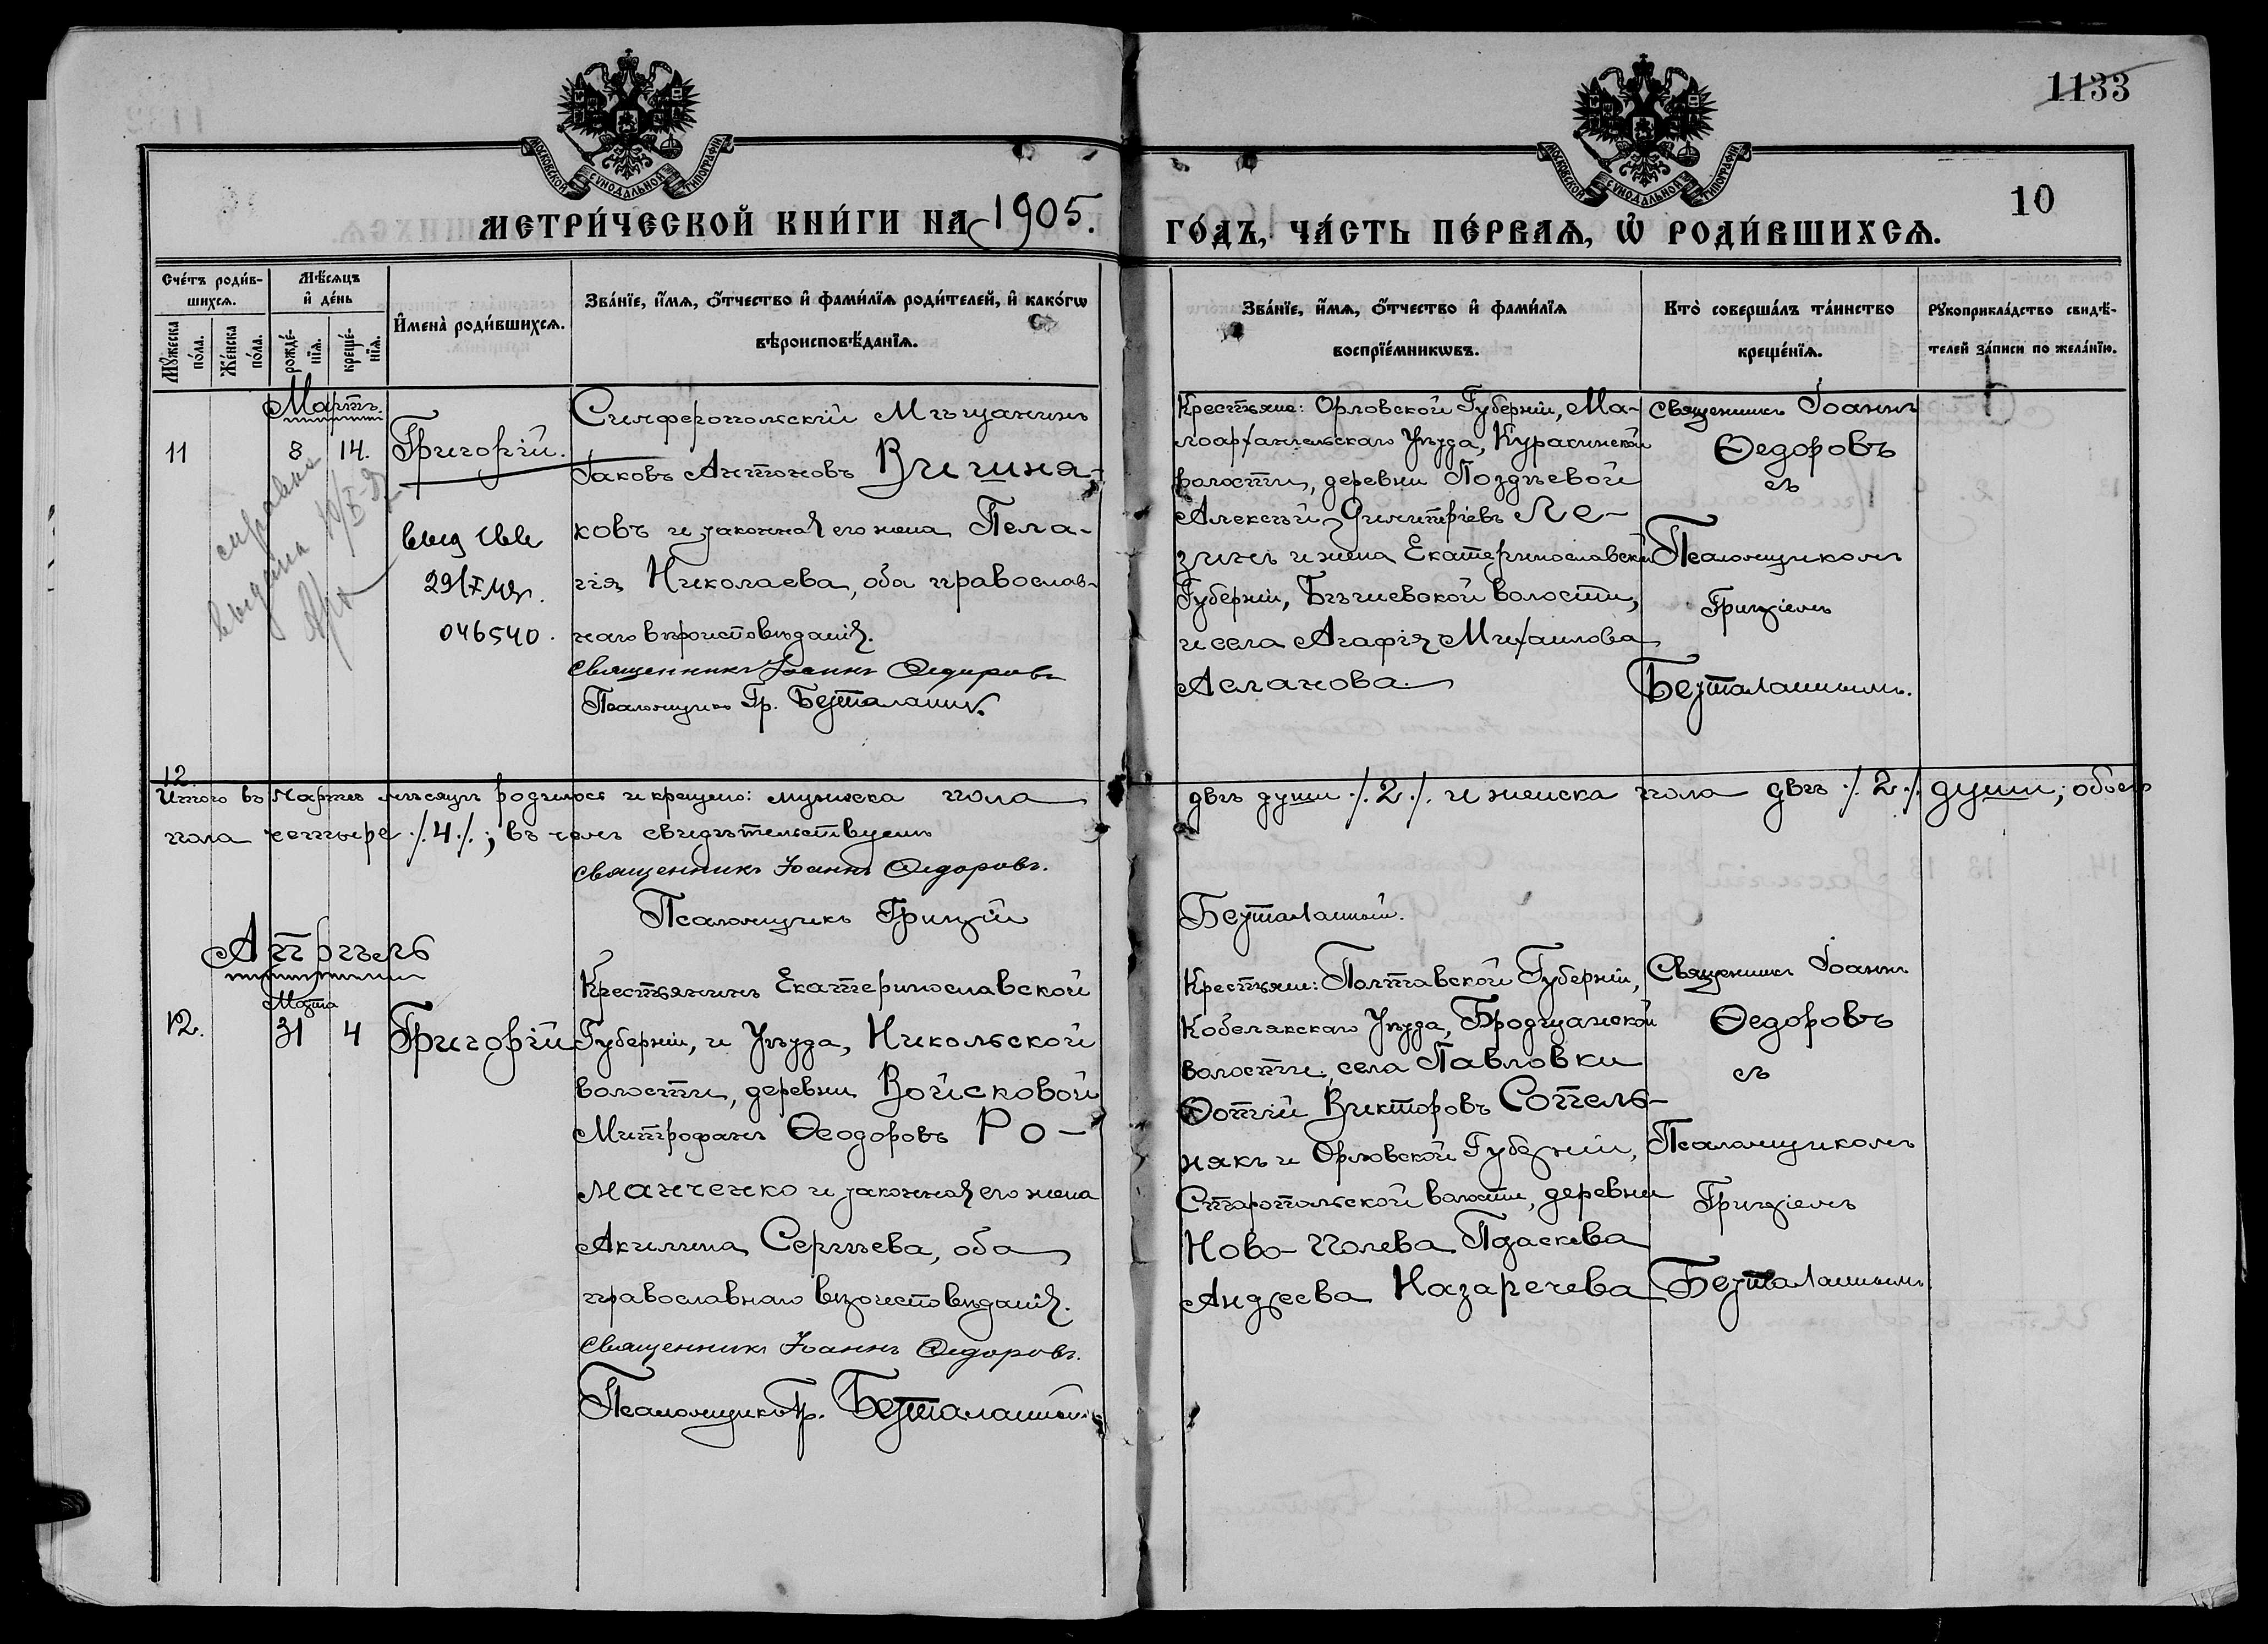 1133
МОСКОВСКОЙ СѴНОДАЛЬНОЙ ТИПОГРАФІИ.
МОСКОВСКОЙ СѴНОДАЛЬНОЙ ТИПОГРАФІИ.
10
МЕТРИ́ЧЕСКОЙ КНИ́ГИ НА 1905. ГО́ДЪ, ЧА́СТЬ ПЕ́РВАѦ, Ѡ҆ РОДИ́ВШИХСѦ.
Сче́тъ роди́в-
шихсѧ.
Мꙋжеска по́ла.
Же́нска по́ла.
Мѣ́сяцъ
и҆ де́нь
рожде́-
нїѧ.
креще́-
нїѧ.
И҆мена̀ роди́вшихсѧ.
Зва́нїе, и҆́мѧ, ѻ҆́тчество и҆ фами́лїѧ роди́телей, и҆ како́гѡ
вѣроисповѣ́данїѧ.
Зва́нїе, и҆́мѧ, ѻ҆́тчество и҆ фами́лїѧ
воспрїе́мникѡвъ.
Кто̀ соверша́лъ та́инство
креще́нїѧ.
Рꙋкоприкла́дство свидѣ́-
телей за́писи по жела́нїю.
Мартъ.
11
8
14.
Григорій.
справка
выдана 10/X-
выд свід
29/X
046540.
Симферопольскій Мѣщанинъ
Іаковъ Антоновъ Вишня-
ковъ и законная его жена Пела-
гія Николаева, оба православ-
наго вѣроисповѣданія.
Священникъ Іоаннъ Ѳедоровъ
Псаломщикъ Гр. Безталанный.
Крестьяне: Орловской Губерніи, Ма-
лоархангельскаго Уѣзда, Куракинской
волости, деревни Поздѣевой
Алексѣй Димитріевъ Ле-
зинъ и жена Екатеринославской
Губерніи, Бѣчиевской волости,
и села Агафія Михаилова
Асланова.
Священникъ Іоаннъ
Ѳедоровъ
съ
Псаломщикомъ
Григоріемъ
Безталаннымъ.
12
Итого въ Мартѣ мѣсяцѣ родилось и крещено: мужеска пола двѣ души ./.2./. и женска пола двѣ ./.2./. души, обоего
пола четыре ./.4./.; въ чемъ свидѣтельствуемъ
Священникъ Іоаннъ Ѳедоровъ.
Псаломщикъ Григорій Безталанный.
Апрѣль
Марта
12.
31
4
Григорій
Крестьянинъ Екатеринославской
Губерніи, и Уѣзда, Никольской
волости, деревни Войсковой
Митрофанъ Ѳеодоровъ Ро-
манченко и законная его жена
Акилина Сергѣева, оба
православнаго вѣроисповѣданія.
Священникъ Іоаннъ Ѳедоровъ.
Псаломщикъ Гр. Безталанный.
Крестьяне: Полтавской Губерніи,
Кобелякскаго Уѣзда, Бродщанской
волости, села Павловки
Фотій Викторовъ Сотель-
някъ и Орловской Губерніи,
Старопольской волости, деревни
Ново-Полева Параскева
Андреева Назаречева
Священникъ Іоаннъ
Ѳедоровъ
съ
Псаломщикомъ
Григоріемъ
Безталаннымъ.